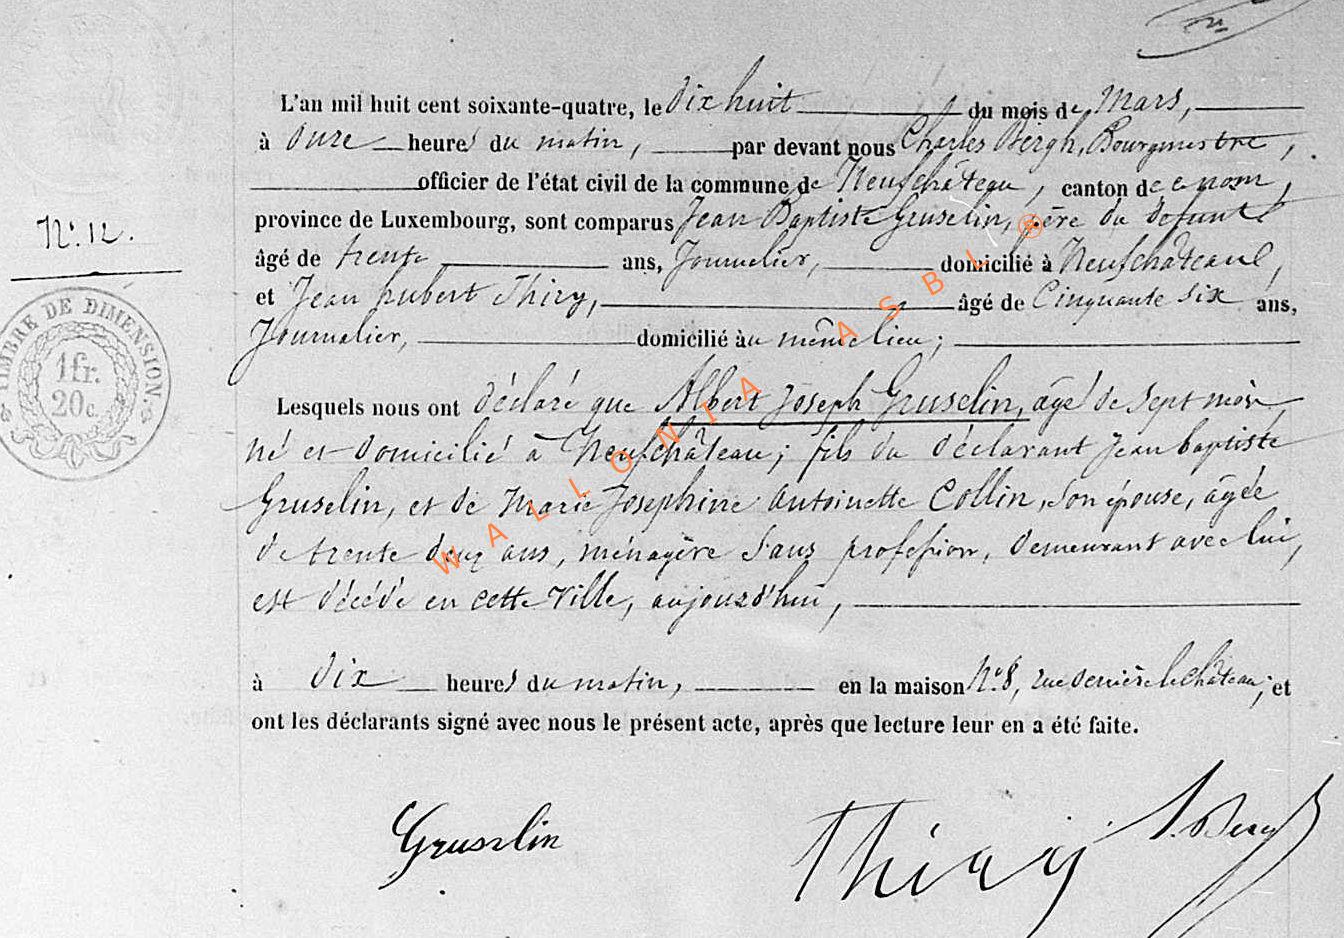 L'an mil huit cent soixante-quatre, le dix huit du mois de Mars,
à onze heures du matin, par devant nous Charles Bergh, Bourgmestre,
officier de l'état civil de la commune de Neufchâteau, canton de ce nom,
province de Luxembourg, sont comparus Jean Baptiste Gruselin, père du défunt
N° 12.
âgé de trente ans, Journalier, domicilié à Neufchâteau,
et Jean hubert Thiry, âgé de Cinquante six ans,
Journalier, domicilié au même lieu;
TIMBRE DE DIMENSION.
1fr.
20c.
Lesquels nous ont déclaré que Albert Joseph Gruselin, âgé de Sept mois,
né et domicilié à Neufchâteau; fils du déclarant Jean baptiste
Gruselin, et de Marie Josephine Antoinette Collin, son épouse, âgée
de trente deux ans, ménagère sans profession, demeurant avec lui,
est décédé en cette Ville, aujourd'hui,
à dix heures du matin, en la maison N° 8, rue derrière le château; et
ont les déclarants signé avec nous le présent acte, après que lecture leur en a été faite.
Gruselin Thiry
WALLONIA ASBL ®